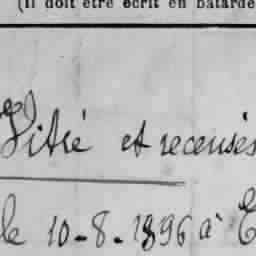 (Il doit être écrit en bâtarde
et recensés
le 10-8-1896 à